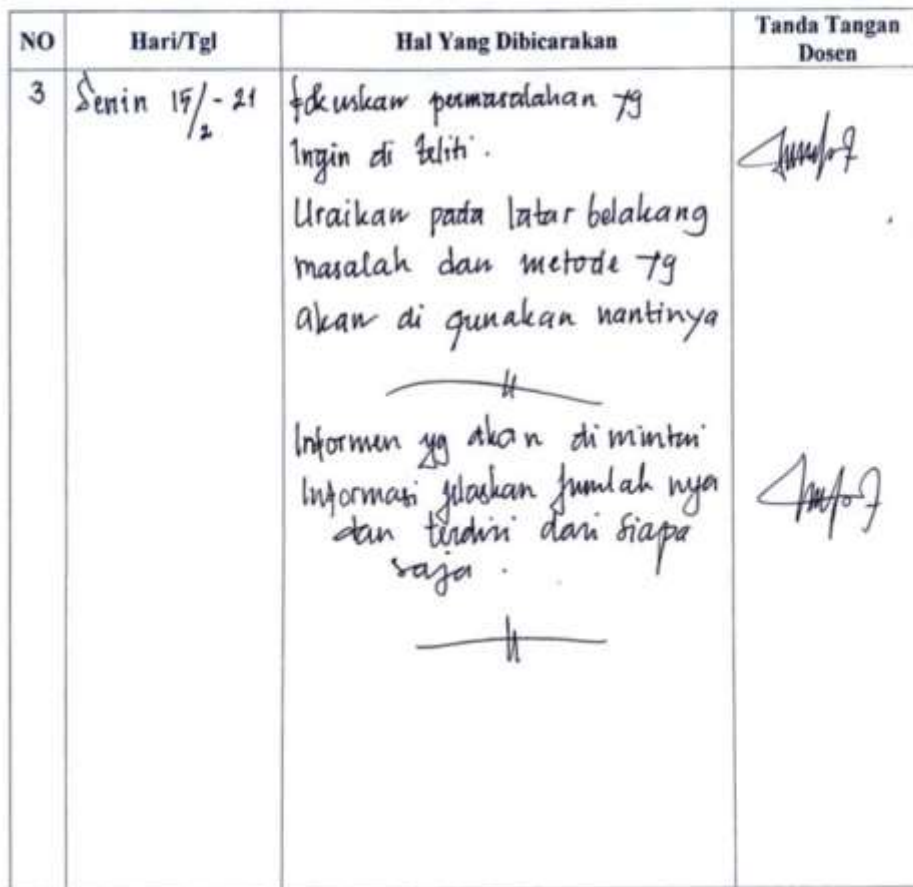 NO Hari/Tgl Hal Yang Dibicarakan Tanda Tangan Dosen
3 Senin 15/2 - 21 fokuskan permasalahan yg
Ingin di teliti.
Uraikan pada latar belakang
masalah dan metode yg
akan di gunakan nantinya
Informen yg akan di mintai
Informasi jelaskan jumlah nya
dan terdiri dari siapa
saja.